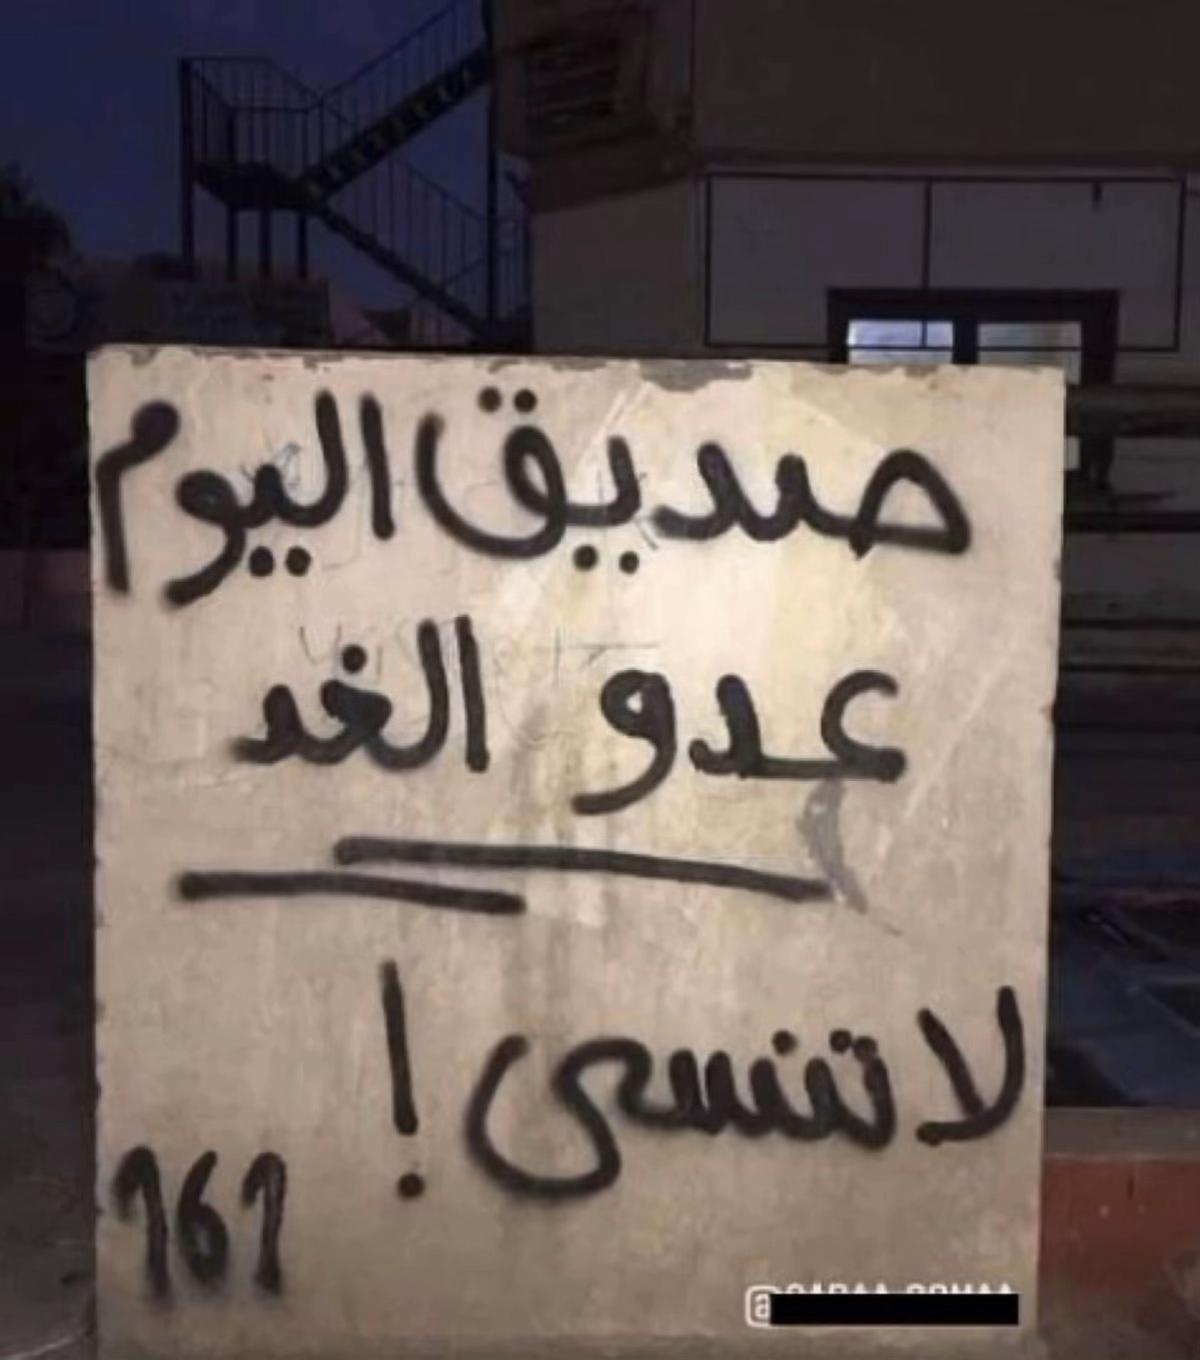 صديق اليوم
عدو الغد
لا تنسى !
161
@